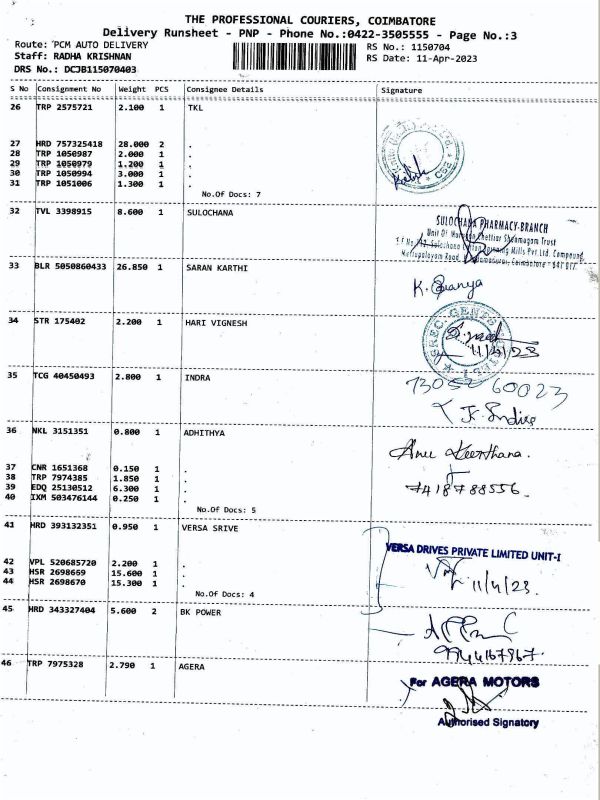 THE PROFESSIONAL COURIERS, COIMBATORE
Delivery Runsheet - PNP - Phone No.:0422-3505555 - Page No.:3
Route: PCM AUTO DELIVERY
RS No.: 1150704
Staff: RADHA KRISHNAN
RS Date: 11-Apr-2023
DRS No.: DCJB115070403
S No Consignment No Weight PCS Consignee Details Signature
26 TRP 2575721 2.100 1 TKL
27 HRD 757325418 28.000 2 .
28 TRP 1050987 2.000 1 .
29 TRP 1050979 1.200 1 .
30 TRP 1050994 3.000 1 .
31 TRP 1051006 1.300 1 .
No.Of Docs: 7
32 TVL 3398915 8.600 1 SULOCHANA
SULOCHANA PHARMACY-BRANCH
33 BLR 5050860433 26.850 1 SARAN KARTHI
34 STR 175402 2.200 1 HARI VIGNESH
11/4/23
35 TCG 40450493 2.800 1 INDRA
73052 60023
36 NKL 3151351 0.800 1 ADHITHYA
37 CNR 1651368 0.150 1 .
38 TRP 7974385 1.850 1 .
39 EDQ 25130512 6.300 1 .
40 IXM 503476144 0.250 1 .
7418788556.
No.Of Docs: 5
41 HRD 393132351 0.950 1 VERSA SRIVE
VERSA DRIVES PRIVATE LIMITED UNIT-I
42 VPL 520685720 2.200 1 .
43 HSR 2698669 15.600 1 .
44 HSR 2698670 15.300 1 .
11/4/23.
No.Of Docs: 4
45 HRD 343327404 5.600 2 BK POWER
9944167967.
46 TRP 7975328 2.790 1 AGERA
For AGERA MOTORS
Authorised Signatory